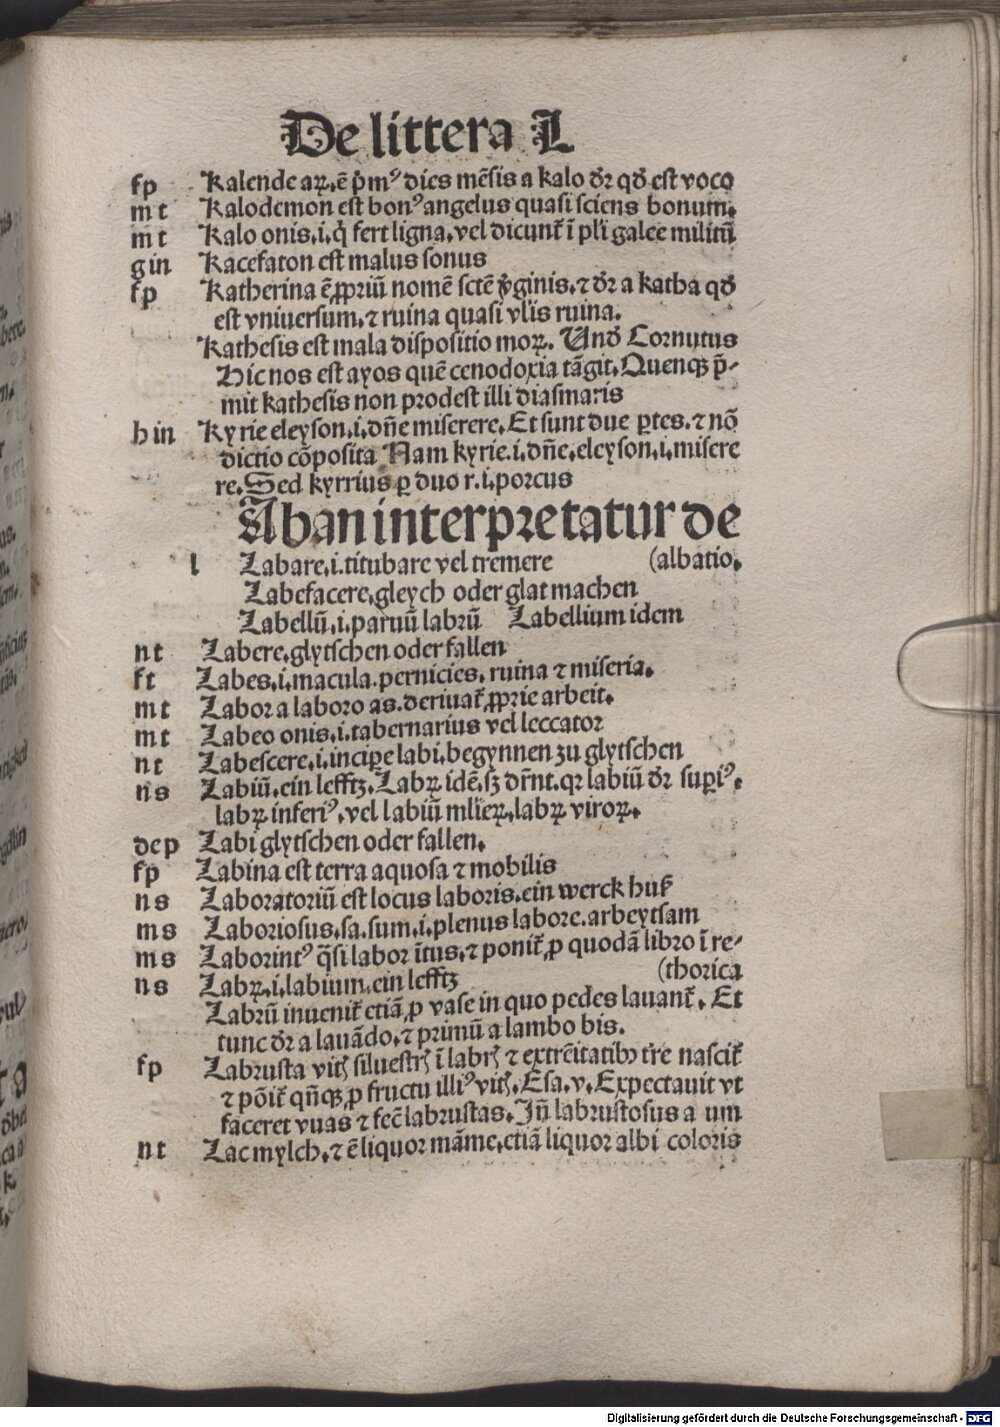 De littera L
fp Kalende aꝝ. ē p̄mꝰ dies mēsis a kalo dr̄ qd̄ est voco
m t Kalodemon est bonꝰ angelus quasi sciens bonum.
m t Kalo onis. i. q̇ fert ligna. vel dicunt̄ ī pl̄i galee militū
g in Kacefaton est malus sonus
fp Katherina ē ꝓpriū nomē sctē v̄ginis. ⁊ dr̄ a katha qd̄
est vniuersum. ⁊ ruina quasi vl̄is ruina.
Kathesis est mala dispositio moꝝ. Vnd̄ Cornutus
Hic nos est ayos quē cenodoxia tāgit. Quenqꝫ p̄-
mit kathesis non prodest illi diasmaris
h in Kyrie eleyson. i. dn̄e miserere. Et sunt due ꝑtes. ⁊ nō
dictio cōposita Nam kyrie. i. dn̄e. eleyson. i. misere
re. Sed kyrrius ꝑ duo r. i. porcus
Aban interpretatur de
l Labare. i. titubare vel tremere (albatio.
Labefacere. gleych oder glat machen
Labellū. i. paruū labrū Labellium idem
n t Labere. glytschen oder fallen
f t Labes. i. macula. pernicies. ruina ⁊ miseria.
m t Labor a laboro as. deriuat̄ ꝓprie arbeit.
m t Labeo onis. i. tabernarius vel leccator
n t Labescere. i. incipe labi. begynnen zu glytschen
n s Labiū. ein lefftz. Labꝝ idē. sꝫ dr̄nt. qr labiū dr̄ suꝑiꝰ.
labꝝ inferiꝰ. vel labiū mlieꝝ. labꝝ viroꝝ.
dep Labi glytschen oder fallen.
fp Labina est terra aquosa ⁊ mobilis
n s Laboratoriū est locus laboris. ein werck huß
m s Laboriosus. sa. sum. i. plenus labore. arbeytsam
m s Laborintꝰ q̄si labor ītus. ⁊ ponit̄ ꝓ quodā libro ī re-
n s Labꝝ. i. labium. ein lefftz (thorica
Labrū inuenit̄ etiā ꝓ vase in quo pedes lauant̄. Et
tunc dr̄ a lauādo. ⁊ primū a lambo bis.
fp Labrusta vitꝭ siluestrꝭ ī labrꝭ ⁊ extrēitatibꝫ tr̄e nascit̄
⁊ pōit̄ qn̄qꝫ ꝓ fructu illiꝰ vitꝭ. Esa. v. Expectauit vt
faceret vuas ⁊ fec̄ labrustas. Jn̄ labrustosus a um
n t Lac mylch. ⁊ ē liquor māme. etiā liquor albi coloris
Digitalisierung gefördert durch die Deutsche Forschungsgemeinschaft - DFG